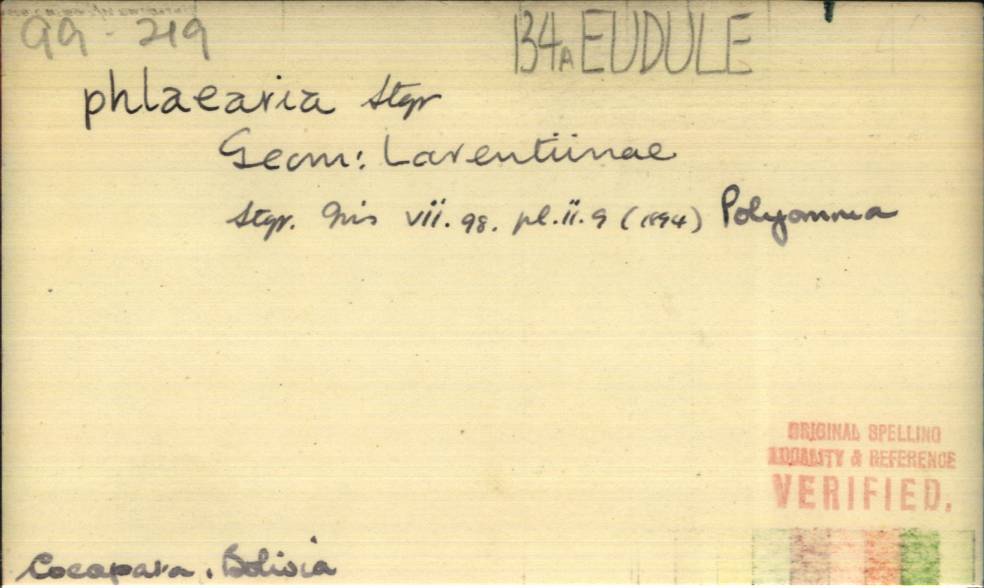 99-219
134A EUDULE
phlaearia Stgr
Geom: Larentiinae
Stgr. Iris vii. 98. pl.ii.9 (1894) Polyomma
ORIGINAL SPELLING
LOCALITY & REFERENCE
VERIFIED.
Cocapara. Bolivia